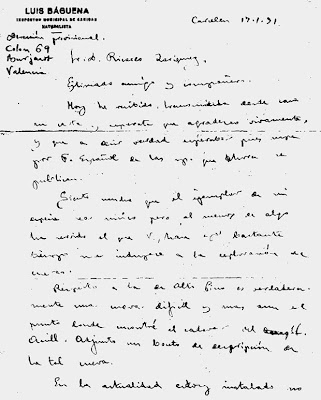 LUIS BÁGUENA
INSPECTOR MUNICIPAL DE SANIDAD
NATURALISTA
Cavalen 17.1.31
Dirección provisional.
Colon, 69
Burjasot
Valencia
Sr. D. Ricardo
Estimado amigo y compañero:
Hoy he recibido, transmitida desde casa
en esta, separata que agradezco vivamente,
y que a decir verdad esperaba pues supe
por F. Español de las sp. que ahora se
publican.
Siento mucho que el ejemplar de mi
especie sea único pero al menos de algo
ha servido el que V. hace bastante
tiempo me indujera a la exploración de
cuevas.
Respecto a la de Alto Pino es verdadera-
mente una cueva difícil y mas aun el
punto donde encontré el cadaver del
Anill. Adjunto un boceto de descripción de
la tal cueva.
En la actualidad estoy instalado no